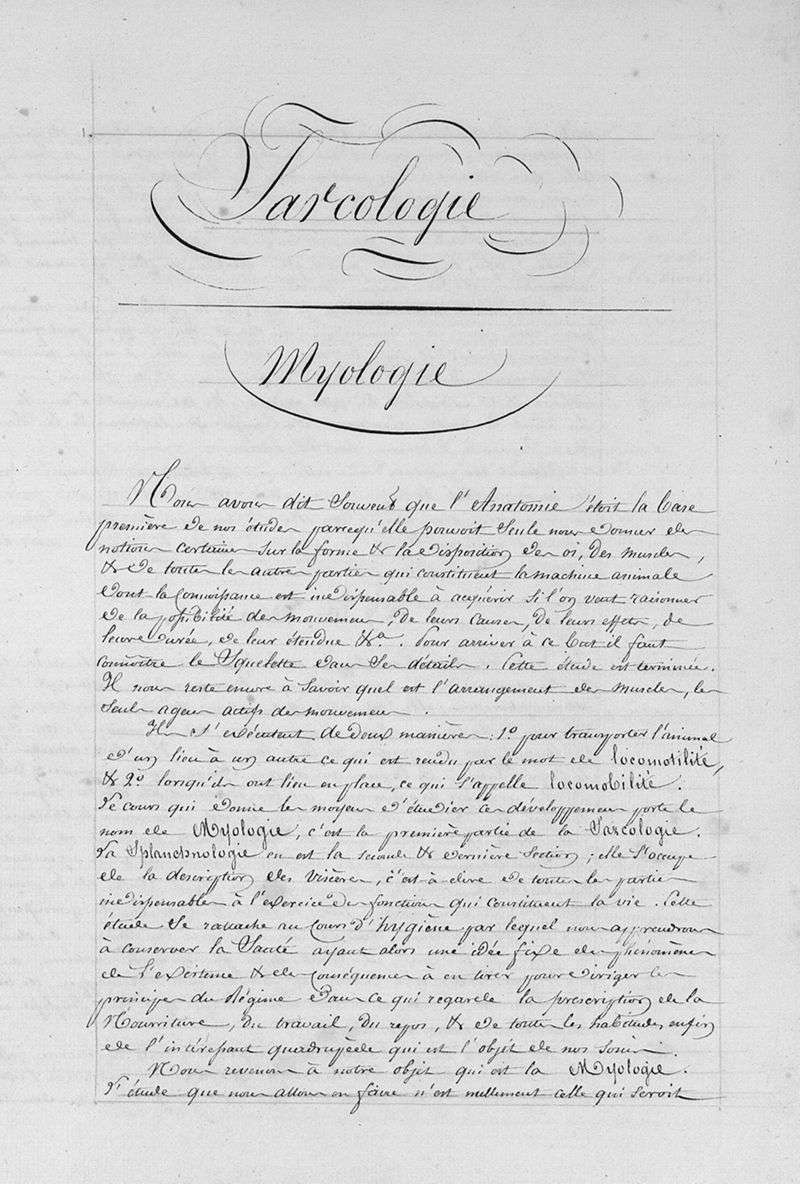 Sarcologie
Myologie
Nous avons dit souvent que l'Anatomie étoit la base
première de nos études parcequ'elle pouvoit seule nous donner des
notions certaines sur la forme & la disposition des os, des muscles,
& de toutes les autres parties qui constituent la machine animale
dont la connoissance est indispensable à acquérir si l'on veut raisonner
de la possibilité des mouvemens, de leurs causes, de leurs effets, de
leur durée, de leur étendue &a. Pour arriver à ce but il faut
connoître le Squelette dans ses détails. Cette étude est terminée.
Il nous reste encore à savoir quel est l'arrangement des muscles, les
seuls agens actifs des mouvemens.
Ils s'exécutent de deux manières: 1o pour transporter l'animal
d'un lieu à un autre ce qui est rendu par le mot de locomotilité,
& 2o lorsqu'ils ont lieu en place, ce qui s'appelle locomobilité.
Le cours qui donne les moyens d'étudier ces développemens porte le
nom de Myologie, c'est la première partie de la Sarcologie.
La Splanchnologie en est la seconde & dernière section; elle s'occupe
de la description des viscères, c'est à dire de toutes les parties
indispensables à l'exercice des fonctions qui constituent la vie. Cette
étude se rattache au Cours d'hygiène par lequel nous apprendrons
à conserver la Santé ayant alors une idée fixe des phénomènes
de l'existence & des conséquences à en tirer pour diriger les
principes du Régime dans ce qui regarde la prescription de la
Nourriture, du travail, du repos, & de toutes les habitudes enfin
de l'intéressant quadrupède qui est l'objet de nos soins.
Nous revenons à notre objet qui est la Myologie.
L'étude que nous allons en faire n'est nullement celle qui seroit